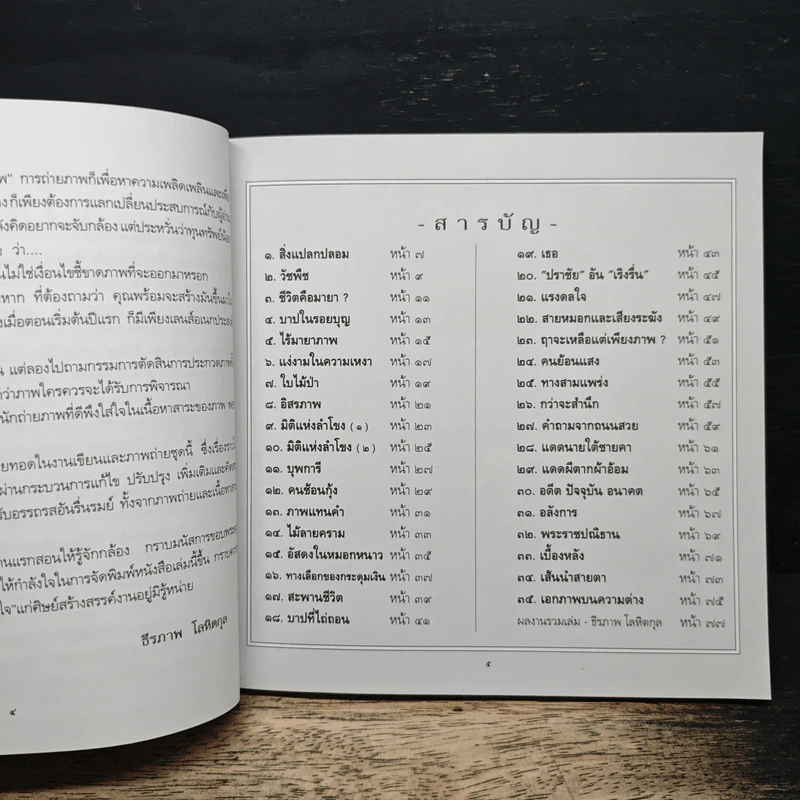 พ" การถ่ายภาพก็เพื่อหาความเพลิดเพลินและเพื่อ
ก็เพียงต้องการแลกเปลี่ยนประสบการณ์กับผู้
งคิดอยากจะจับกล้อง แต่ประหวั่นว่าทุนทรัพย์
ว่า....
นไม่ใช่เงื่อนไขชี้ขาดภาพที่จะออกมาหรอก
หาก ที่ต้องถามว่า คุณพร้อมจะสร้างมันขึ้นมา
งเมื่อตอนเริ่มต้นปีแรก ก็มีเพียงเลนส์อเนกประสงค์
น แต่ลองไปถามกรรมการตัดสินการประกวดภาพ
ว่าภาพใครควรจะได้รับการพิจารณา
นักถ่ายภาพที่ดีพึงใส่ใจในเนื้อหาสาระของภาพ
ยทอดในงานเขียนและภาพถ่ายชุดนี้ ซึ่งเรื่อง
ผ่านกระบวนการแก้ไข ปรับปรุง เพิ่มเติมและ
รับอรรถรสอันรื่นรมย์ ทั้งจากภาพถ่ายและเนื้อหา
คนแรกสอนให้รู้จักกล้อง กราบมนัสการขอบพระ
ให้กำลังใจในการจัดพิมพ์หนังสือเล่มนี้ขึ้น กราบ
ใจ"แก่ศิษย์สร้างสรรค์งานอยู่มิรู้หน่าย
ธีรภาพ โลหิตกุล
๔
- สารบัญ -
๑. สิ่งแปลกปลอม หน้า ๗
๒. วัชพืช หน้า ๙
๓. ชีวิตคือมายา ? หน้า ๑๑
๔. บาปในรอยบุญ หน้า ๑๓
๕. ไร้มายาภาพ หน้า ๑๕
๖. แง่งามในความเหงา หน้า ๑๗
๗. ใบไม้ป่า หน้า ๑๙
๘. อิสรภาพ หน้า ๒๑
๙. มิติแห่งลำโขง (๑) หน้า ๒๓
๑๐. มิติแห่งลำโขง (๒) หน้า ๒๕
๑๑. บุพการี หน้า ๒๗
๑๒. คนช้อนกุ้ง หน้า ๒๙
๑๓. ภาพแทนคำ หน้า ๓๑
๑๔. ไม้ลายคราม หน้า ๓๓
๑๕. อัสดงในหมอกหนาว หน้า ๓๕
๑๖. ทางเลือกของกระดุมเงิน หน้า ๓๗
๑๗. สะพานชีวิต หน้า ๓๙
๑๘. บาปที่ไถ่ถอน หน้า ๔๑
๑๙. เธอ หน้า ๔๓
๒๐. "ปราชัย" อัน "เริงรื่น" หน้า ๔๕
๒๑. แรงดลใจ หน้า ๔๗
๒๒. สายหมอกและเสียงระฆัง หน้า ๔๙
๒๓. ฤาจะเหลือแต่เพียงภาพ ? หน้า ๕๑
๒๔. คนย้อนแสง หน้า ๕๓
๒๕. ทางสามแพร่ง หน้า ๕๕
๒๖. กว่าจะสำนึก หน้า ๕๗
๒๗. คำถามจากถนนสวย หน้า ๕๙
๒๘. แดดนายใต้ชายคา หน้า ๖๑
๒๙. แดดผีตากผ้าอ้อม หน้า ๖๓
๓๐. อดีต ปัจจุบัน อนาคต หน้า ๖๕
๓๑. อลังการ หน้า ๖๗
๓๒. พระราชปณิธาน หน้า ๖๙
๓๓. เบื้องหลัง หน้า ๗๑
๓๔. เส้นนำสายตา หน้า ๗๓
๓๕. เอกภาพบนความต่าง หน้า ๗๕
ผลงานรวมเล่ม - ธีรภาพ โลหิตกุล หน้า ๗๗
๕